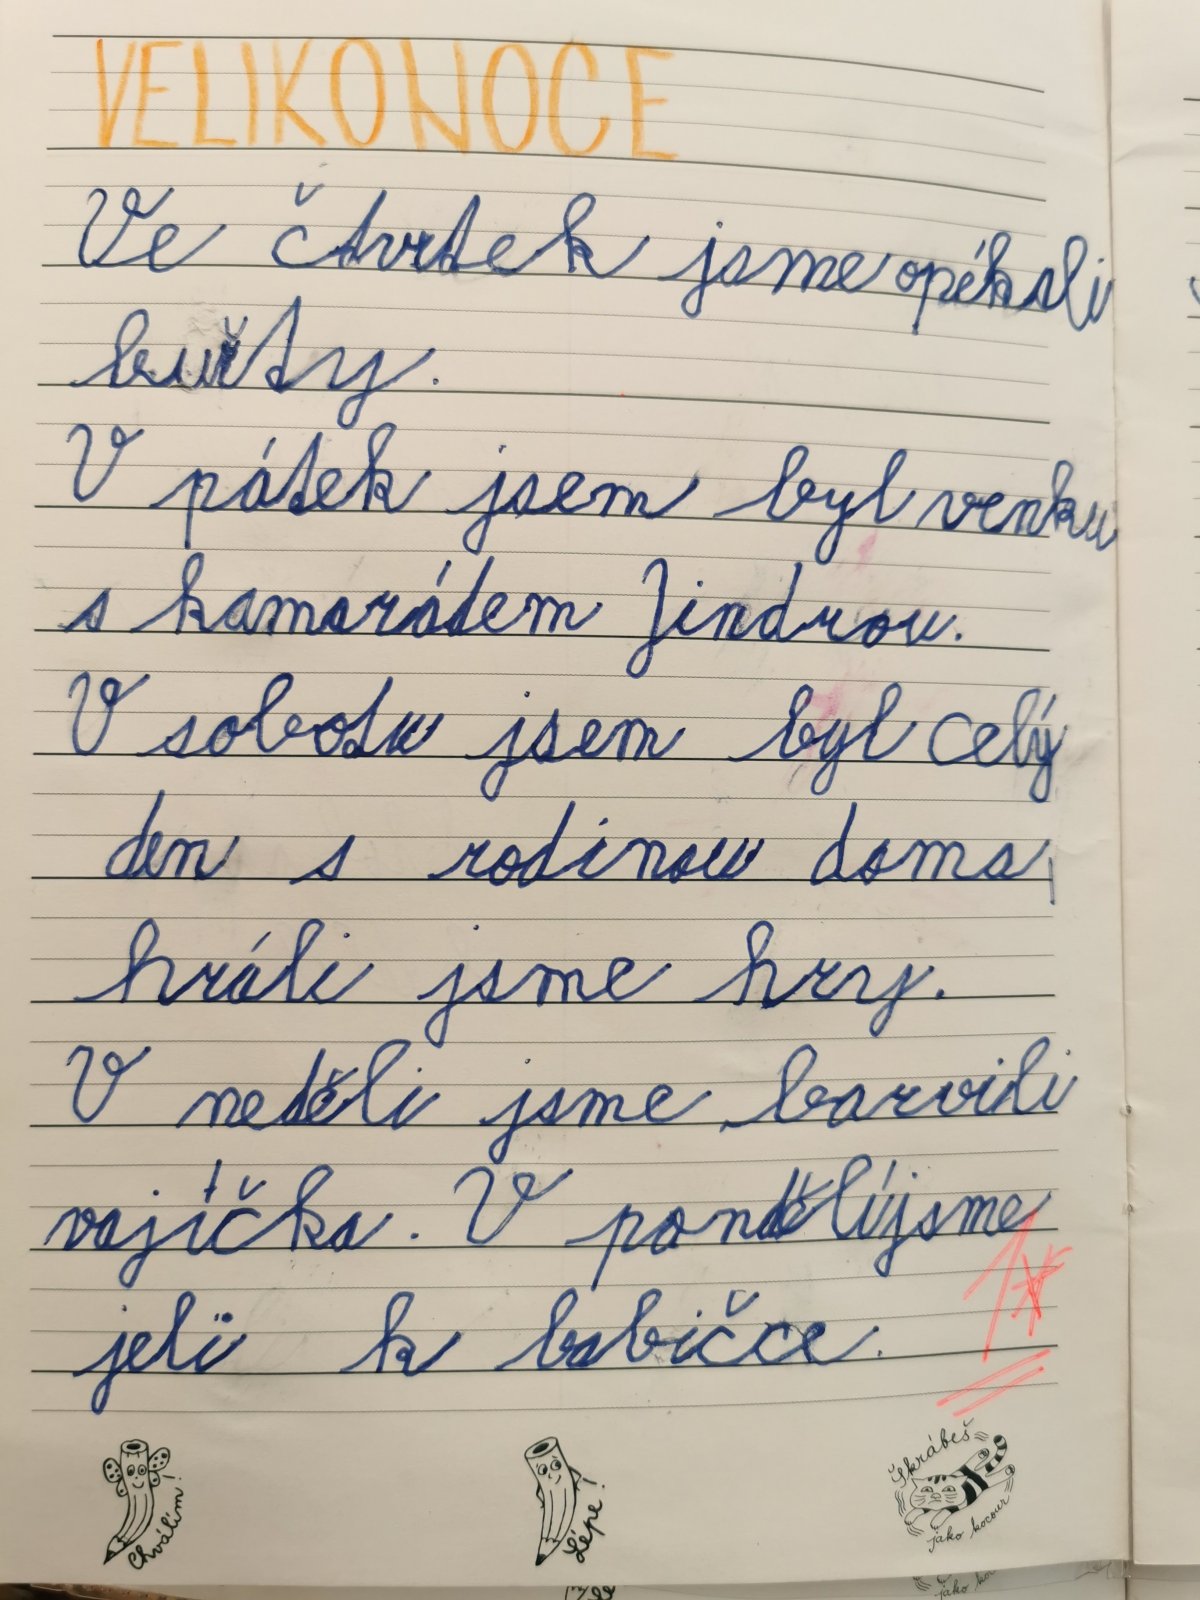 VELIKONOCE
Ve čtvrtek jsme opékali
buřty.
V pátek jsem byl venku
s kamarádem Jindrou.
V sobotu jsem byl celý
den s rodinou doma,
hráli jsme hry.
V neděli jsme barvili
vajíčka. V pondělí jsme
jeli k babičce.
1*
Chválím!
Lépe!
Škrábeš
jako kocour